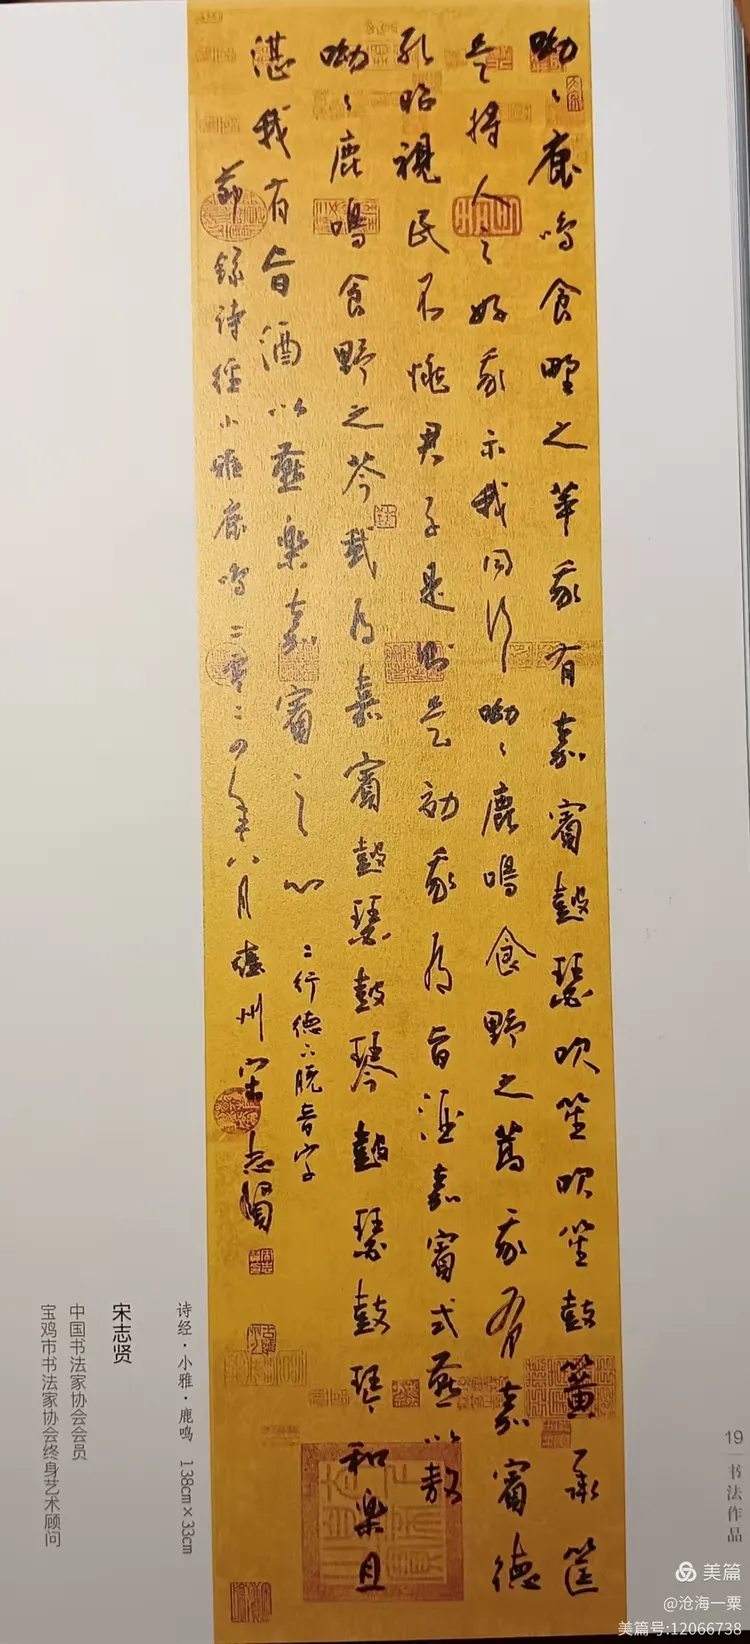 呦〻鹿鸣食野之苹我有嘉賓鼓瑟吹笙吹笙鼓簧承筐
是将人之好我示我周行呦〻鹿鳴食野之蒿我有嘉賓德
孔昭視民不恌君子是則是効我有旨酒嘉賓式燕以敖
呦〻鹿鳴食野之芩我有嘉賓鼓瑟鼓琴鼓瑟鼓琴和樂且
湛我有旨酒以燕樂嘉賓之心
二行德下脱音字
錄詩經小雅鹿鳴二零二四年八月雍州宋志賢
诗经·小雅·鹿鸣 138cm×33cm
宋志贤
中国书法家协会会员
宝鸡市书法家协会终身艺术顾问
19
书法作品
美篇
@沧海一粟
美篇号:12066738